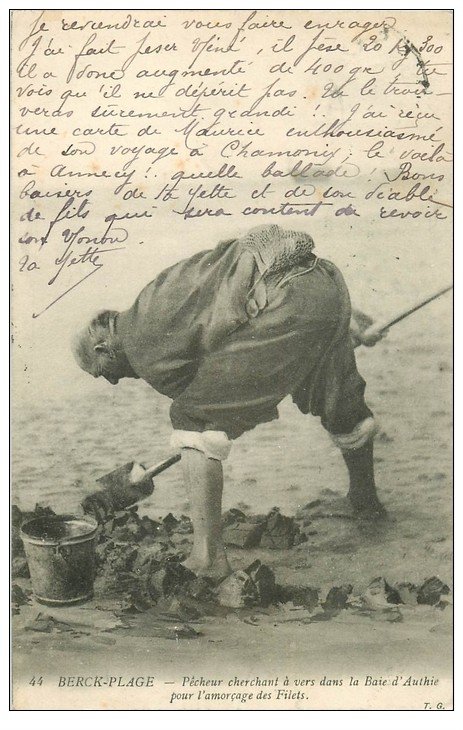 Je reviendrai vous faire enrager
J'ai fait peser Néné, il pèse 20 K. 300
il a donc augmenté de 400 gr. tu
vois qu'il ne dépérit pas. Tu le trou-
veras sûrement grandi !! J'ai reçu
une carte de Maurice enthousiasmé
de son voyage à Chamonix, le voilà
à Annecy !. quelle ballade ! Bons
baisers de ta Yette et de son diable
de fils qui sera content de revoir
son Nonon.
Ta Yette
44 BERCK-PLAGE — Pêcheur cherchant à vers dans la Baie d'Authie
pour l'amorçage des Filets.
T. G.